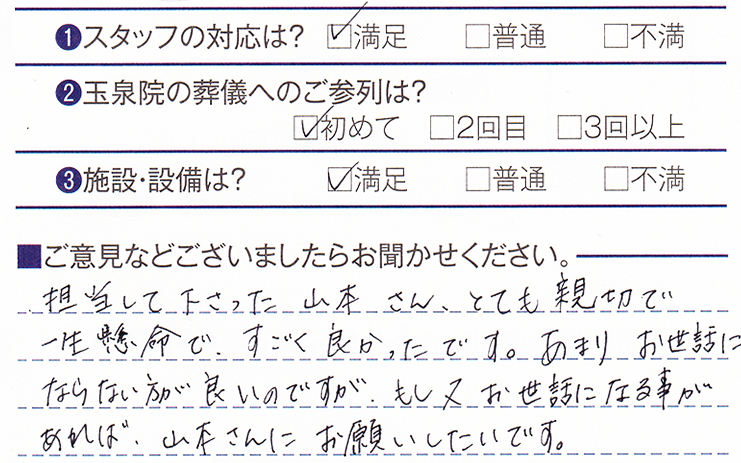 ❶スタッフの対応は? ☑満足 □普通 □不満
❷玉泉院の葬儀へのご参列は?
☑初めて □2回目 □3回以上
❸施設・設備は? ☑満足 □普通 □不満
■ご意見などございましたらお聞かせください。
担当して下さった山本さん、とても親切で
一生懸命で、すごく良かったです。あまりお世話に
ならない方が良いのですが、もし又お世話になる事が
あれば、山本さんにお願いしたいです。